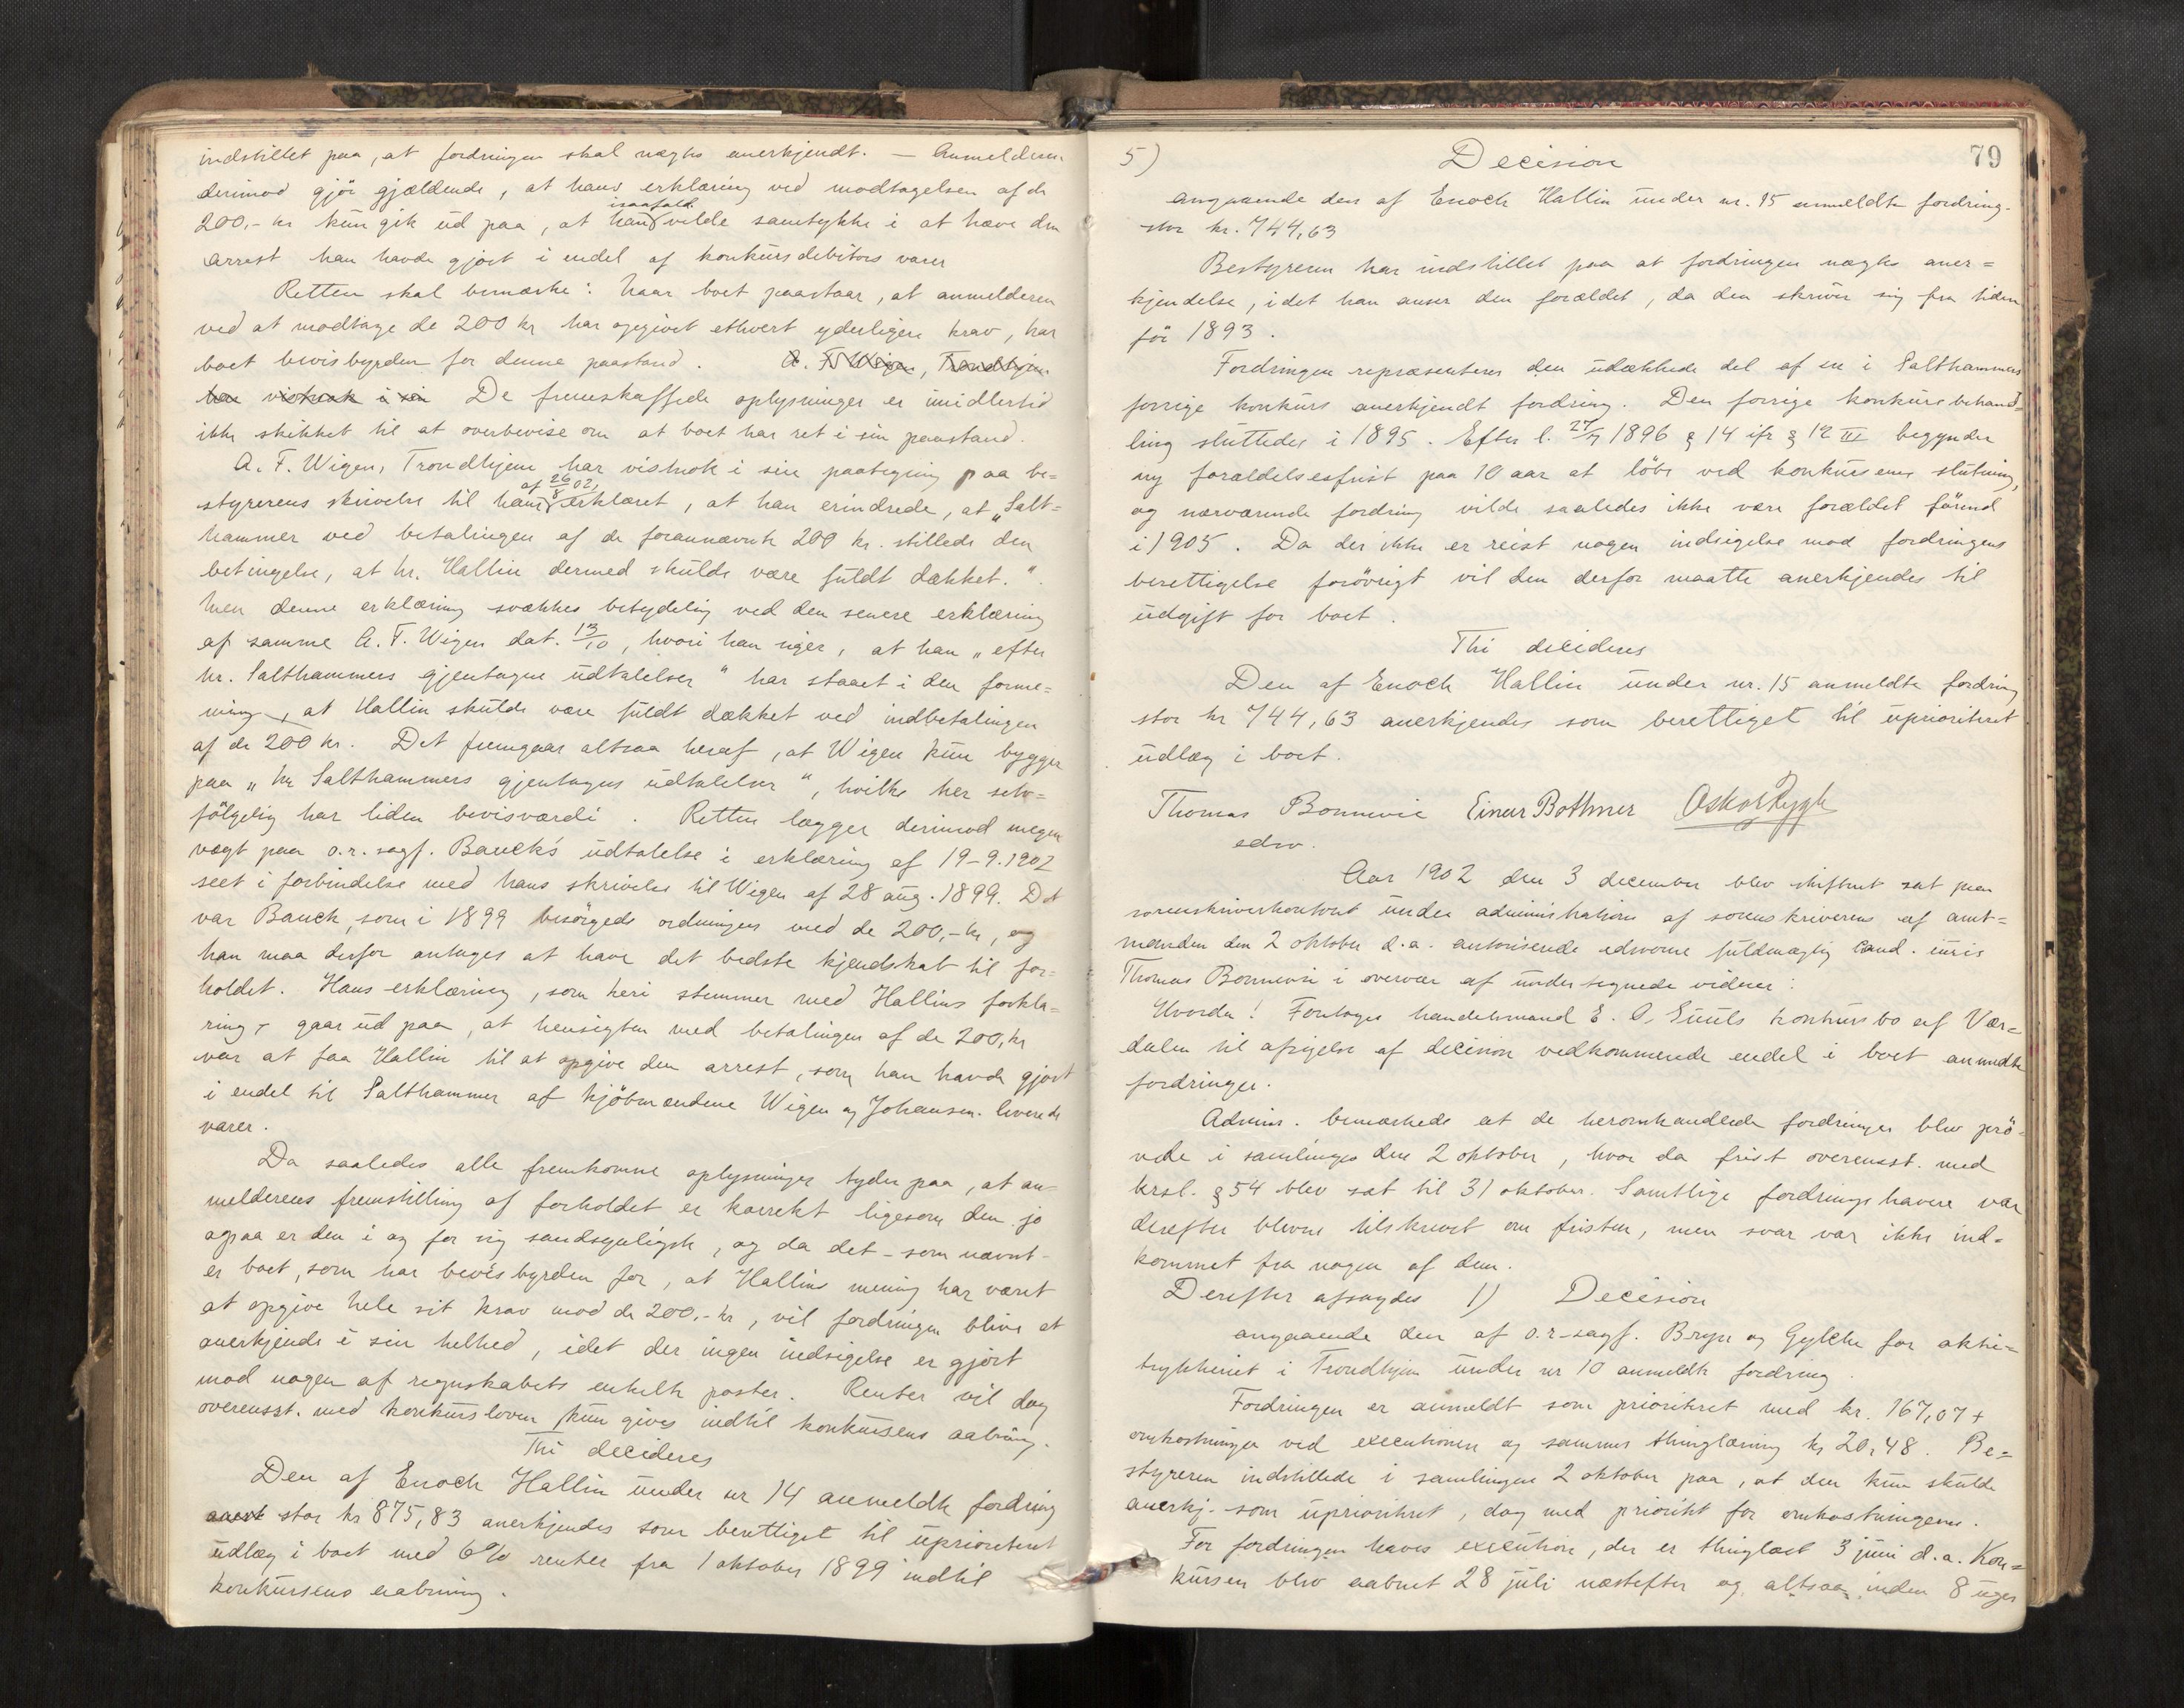 indstillet paa, at fordringen skal nægtes anerkjendt. — Anmelderen
derimod gjör gjældende, at hans erklæring ved modtagelsen af de
200,- kr kun gik ud paa, at han isaafald vilde samtykke i at hæve den
arrest han havde gjort i endel af konkursdebitors varer
Retten skal bemærke: Naar boet paastaar, at anmelderen
ved at modtage de 200 kr har opgivet ethvert yderligere krav, har
boet bevisbyrden for denne paastand. A. F. Wigen, Trondhjem
har vistnok i sin De fremskaffede oplysninger er imidlertid
ikke skikket til at overbevise om at boet har ret i sin paastand.
A. F. Wigen, Trondhjem har vistnok i sin paategning paa be=
styrerens skrivelse til ham af 26/8 02, erklæret, at han erindrede, at „Salt=
hammer ved betalingen af de forannævnte 200 kr. stillede den
betingelse, at hr. Hallin dermed skulde være fuldt dækket.".
Men denne erklæring svækkes betydelig ved den senere erklæring
af samme A. F. Wigen dat. 13/10, hvori han siger, at han „efter
hr. Salthammers gjentagne udtalelser" har staaet i den forme=
ning, at Hallin skulde være fuldt dækket ved indbetalingen
af de 200 kr. Det fremgaar altsaa heraf, at Wigen kun bygger
paa „hr Salthammers gjentagne udtalelser", hvilke her selv=
følgelig har liden bevisværdi. Retten lægger derimod megen
vægt paa o.r.sagf. Bauck's udtalelse i erklæring af 19-9.1902
seet i forbindelse med hans skrivelse til Wigen af 28 aug. 1899. Det
var Bauck, som i 1899 besörgede ordningen med de 200,- kr, og
han maa derfor antages at have det bedste kjendskab til for=
holdet. Hans erklæring, som heri stemmer med Hallins forkla=
ring, gaar ud paa, at hensigten med betalingen af de 200, kr
var at faa Hallin til at opgive den arrest, som han havde gjort
i endel til Salthammer af kjöbmændene Wigen og Johansen leverede
varer.
Da saaledes alle fremkomne oplysninger tyder paa, at an-
melderens fremstilling af forholdet er korrekt ligesom den jo
ogsaa er den i og for sig sandsynligste, og da det - som nævnt -
er boet, som har bevisbyrden for, at Hallins mening har været
at opgive hele sit krav mod de 200.- kr, vil fordringen blive at
anerkjende i sin helhed, idet der ingen indsigelse er gjort
mod nogen af regnskabets enkelte poster. Renter vil dog
overensst. med konkursloven kun gives indtil konkursens aabning.
Thi decideres
Den af Enoch Hallin under nr 14 anmeldte fordring
anerk stor kr 875,83 anerkjendes som berettiget til uprioriteret
udlæg i boet med 6% renter fra 1 oktober 1899 indtil
konkursens aabning.
79
5) Decision
angaaende den af Enoch Hallin under nr. 15 anmeldte fordring
stor kr. 744,63
Bestyreren har indstillet paa at fordringen nægtes aner=
kjendelse, idet han anser den forældet, da den skriver sig fra tiden
för 1893.
Fordringen repræsenterer den udækkede del af en i Salthammers
forrige konkurs anerkjendt fordring. Den forrige konkursbehand=
ling sluttedes i 1895. Efter l. 27/7 1896 § 14 ifr § 12 III begynder
ny forældelsesfrist paa 10 aar at löbe ved konkursens slutning,
og nærværende fordring vilde saaledes ikke være forældet förend
i 1905. Da der ikke er reist nogen indsigelse mod fordringens
berettigelse forövrigt vil den derfor maatte anerkjendes til
udgift for boet.
Thi decideres
Den af Enoch Hallin under nr. 15 anmeldte fordring
stor kr 744,63 anerkjendes som berettiget til uprioriteret
udlæg i boet.
Thomas Bonnevie Einar Bothner Oskar Rygh
edsv.
Aar 1902 den 3 december blev skifteret sat paa
sorenskriverkontoret under administration af sorenskriverens af amt=
manden den 2 oktober d.a. autoriserede edsvorne fuldmægtig cand. iuris
Thomas Bonnevie i overvær af undertegnede vidner:
Hvorda! Foretoges handelsmand E. A. Suuls konkursbo af Vær=
dalen til afsigelse af decision vedkommende endel i boet anmeldte
fordringer.
Admin. bemærkede at de heromhandlede fordringer blev prö-
vede i samlingen den 2 oktober, hvor da frist overensst. med
krsl. § 54 blev sat til 31 oktober. Samtlige fordringshavere var
derefter blevne tilskrevet om fristen, men svar var ikke ind-
kommet fra nogen af dem.
Derefter afsagdes 1) Decision
angaaende den af o.r-sagf. Bryn og Gylche for aktie=
trykkeriet i Trondhjem under nr 10 anmeldte fordring.
Fordringen er anmeldt som prioriteret med kr. 167,07 +
omkostninger ved executionen og sammes thinglæsning kr 20,48. Be=
styreren indstillede i samlingen 2 oktober paa, at den kun skulde
anerkj. som uprioriteret, dog med prioritet for omkostningerne.
For fordringen haves execution, der er thinglæst 3 juni d.a. Kon=
kursen blev aabnet 28 juli næstefter og altsaa inden 8 uger